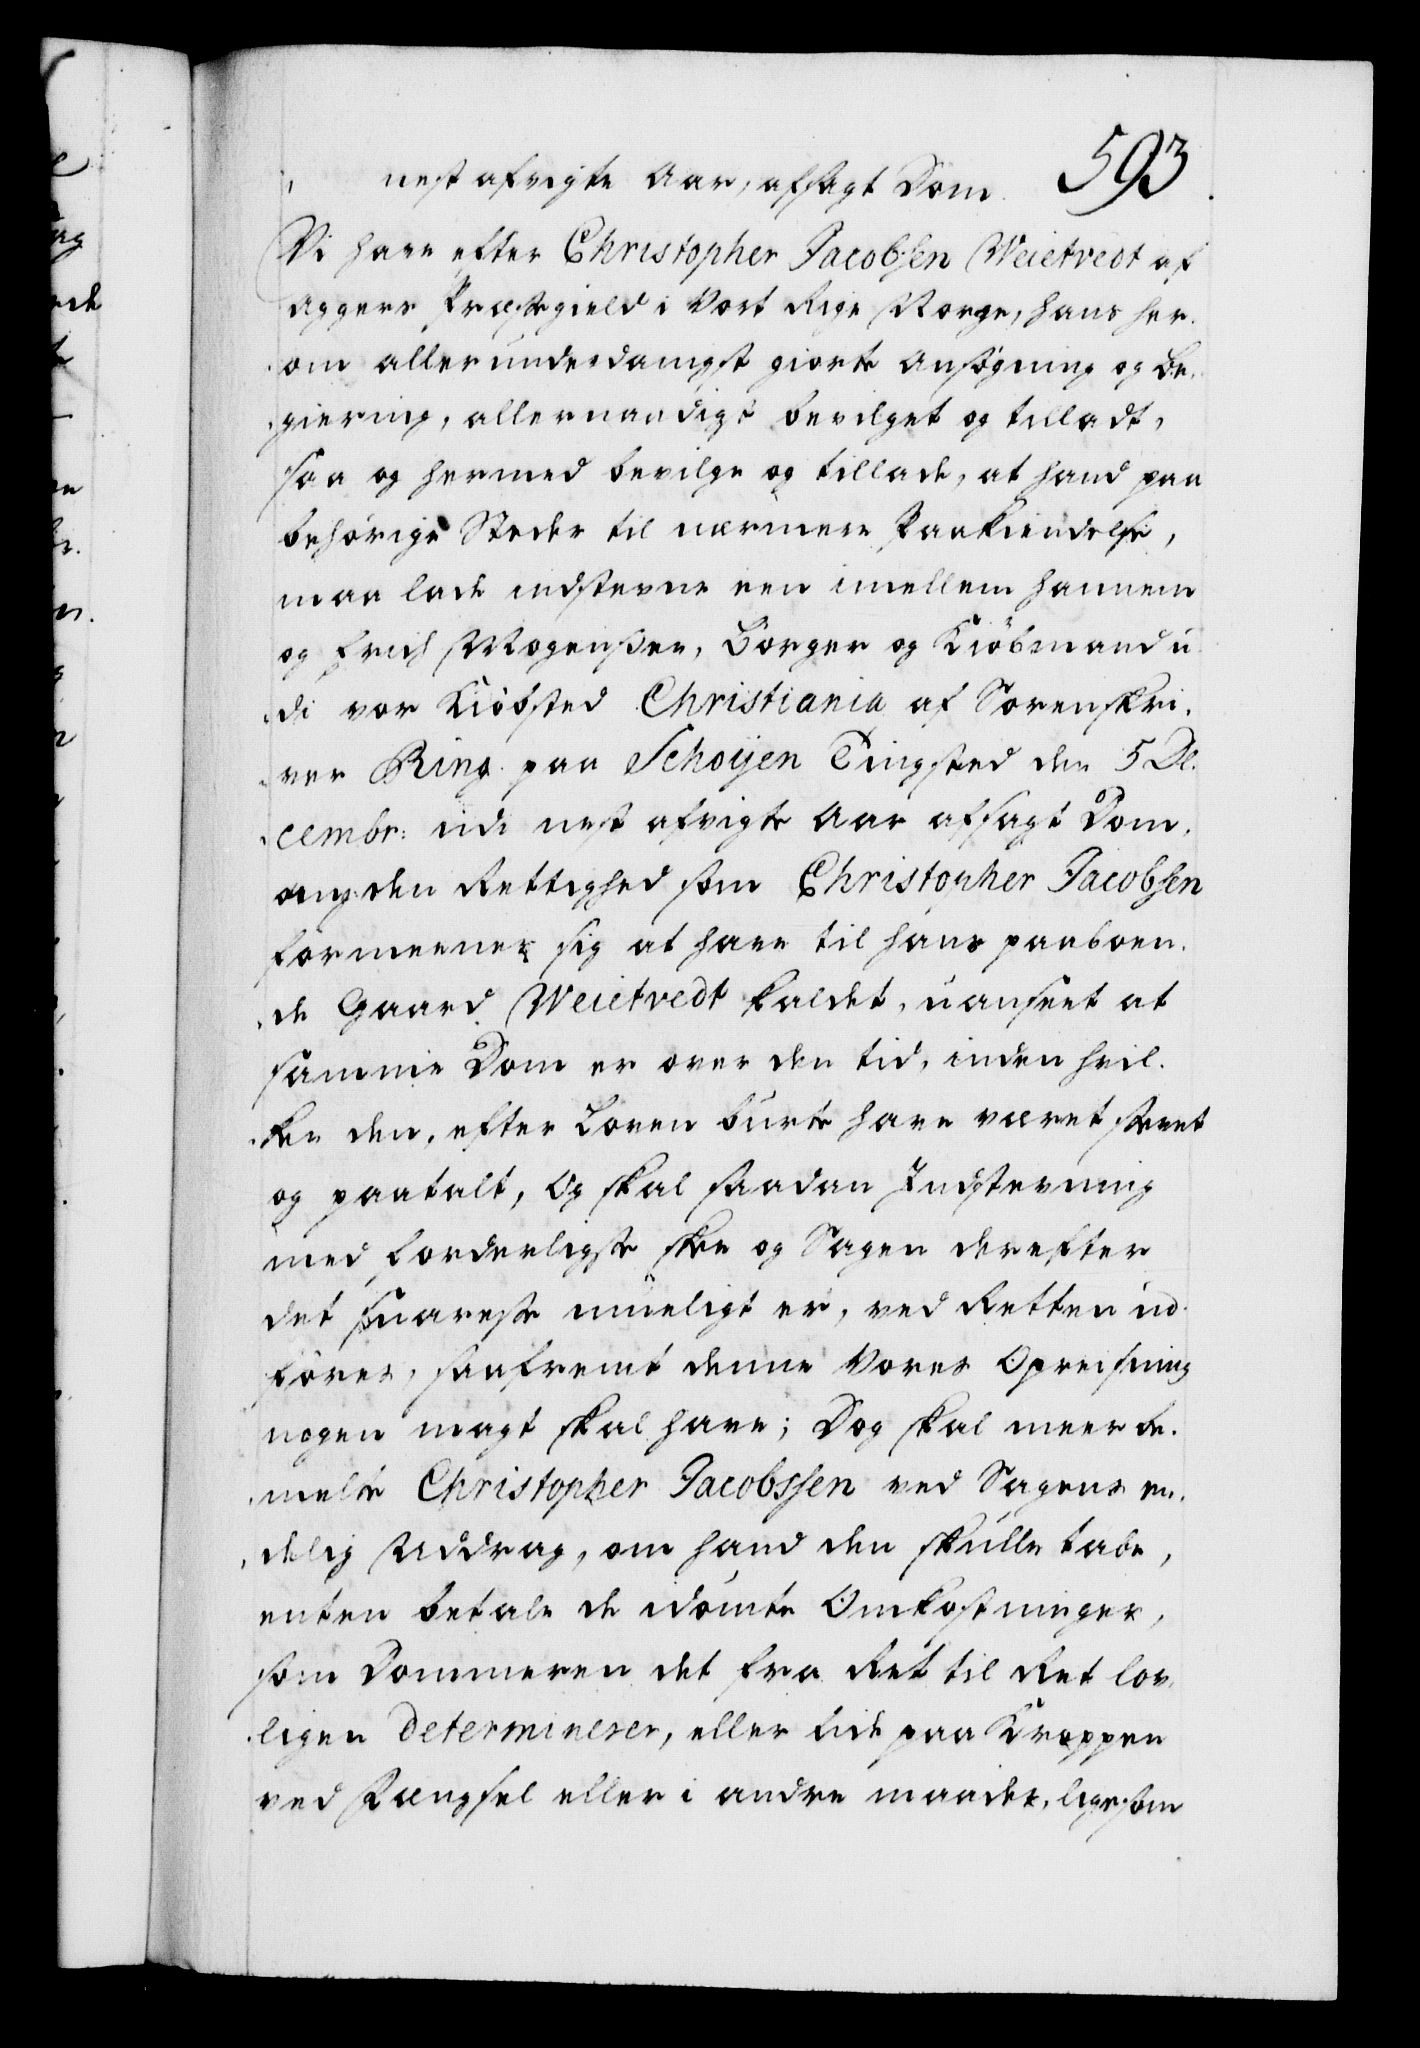 593
nest afvigte Aar, afsagt Dom.
Vi have efter Christopher Jacobsen Weietvedt af
Aggers Præstegield i Vort Rige Norge, hans her¬
om allerunderdanigst giorte Ansøgning og Be¬
giering, allernaadigst bevilget og tilladt,
saa og hermed bevilge og tillade, at hand paa
behørige Steder til nærmere Paakiendelse,
maa lade indstevne een imellem hannem
og Erich Mogensen, Borger og Kiöbmand u¬
di vor Kiöbsted Christiania af Sorenskri¬
ver Ring paa Schoijen Tingsted den 5 De¬
cembr: udi nest afvigte Aar afsagt Dom,
ang: den Rettighed som Christopher Jacobsen
formeener sig at have til hans paaboen¬
de Gaard Weietvedt kaldet, uanseet at
samme Dom er over den tid, inden hvil¬
ken den, efter Loven burte have været stevnt
og paatalt, Og skal saadan Indstevning
med forderligste skee og Sagen derefter
det snareste mueligt er, ved Retten ud¬
føres, saafremt denne Vores Opreisning
nogen magt skal have; Dog skal meerbe¬
melte Christopher Jacobssen ved Sagens en¬
delig Uddrag, om hand den skulle tabe,
enten betale de idømte Omkostninger,
som Dommeren det fra Ret til Ret lov¬
ligen determinerer, eller lide paa Kroppen
ved Fængsel eller i andre maader, ligesom